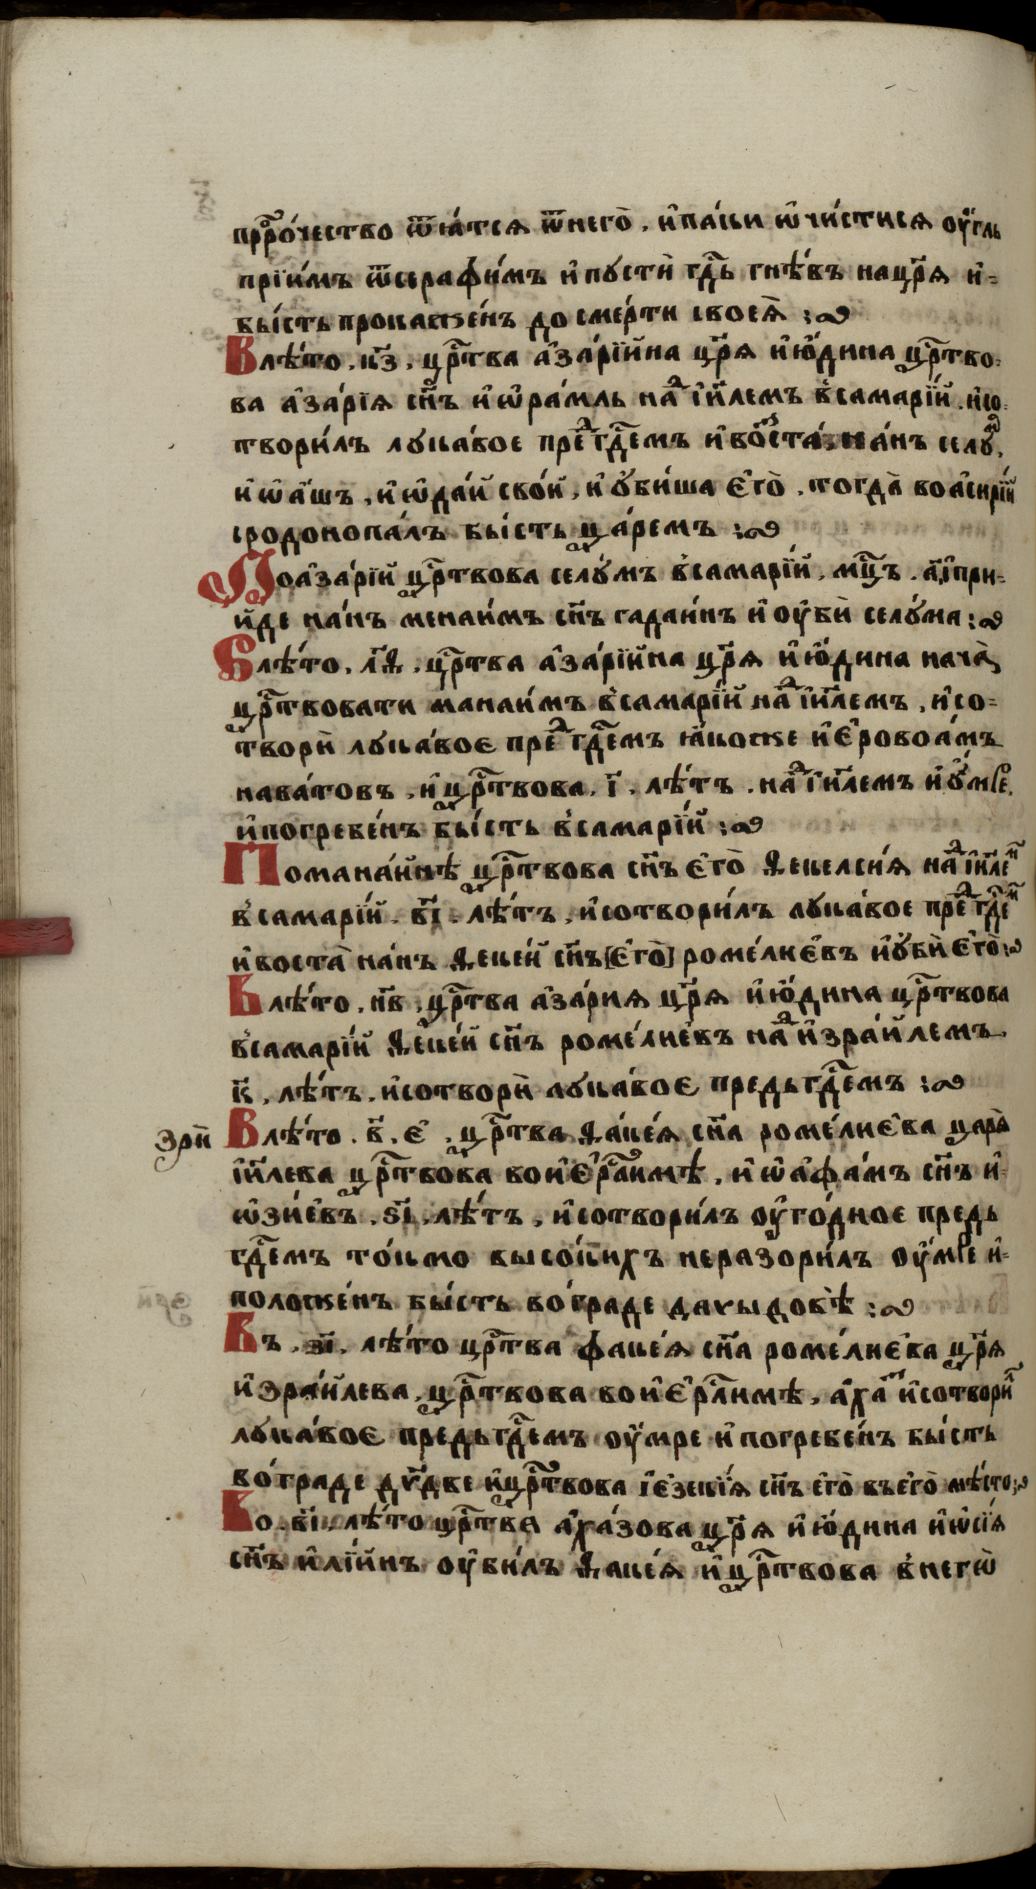 прⷪ҇ро́чество ѿꙗ́тся ѿнего̀ . и҆па́ки ѡ҆чи́стися ѹ҆́гль
прїи́мъ ѿсерафи́мъ и҆пустѝ гдⷭ҇ь гнѣ́въ нацр҃я и҆-
бы́сть прокаже́нъ до сме́рти своея̀ :~
Влѣ́то . к҃з . црⷭ҇тва а҆за́рїйна цр҃я и҆ю҆́дина црⷭ҇тво-
ва а҆за́рїя сн҃ъ и҆ѡ҆ра́мль наⷣ і҆и҃лемъ в҆самарі́й . и҆со-
твори́лъ лука́вое преⷣ гдⷭ҇емъ и҆воⷥста̀ на́нъ селуⷨ ,
и҆ѡ҆а́шъ , и҆ю҆да́й сво́й , и҆ꙋ҆би́ша є҆го̀ . тогда̀ воа҆сирі́й
сродокопа́лъ бы́сть ца́ремъ :~
Поа҆за́рїй црⷭ҇твова селу́мъ в҆самарі́й . мц҃ъ . а҃ , и҆при-
и́де на́нъ менаи́мъ сн҃ъ гадаи́нъ и҆ ѹ҆бѝ селу́ма :~
Влѣ́то . л҃ѳ . црⷭ҇тва а҆за́рїйна цр҃я и҆ю҆́дина нача̀
црⷭ҇твовати манаи́мъ в҆самарі́й наⷣ і҆и҃лемъ , и҆со-
творѝ лука́воє преⷣ гдⷭ҇емъ ꙗ҆́коже и҆є҆ровоа́мъ
нава́товъ . и҆црⷭ҇твова . і҃ . лѣ́тъ . наⷣ і҆и҃лемъ и҆ꙋ҆́мре .
и҆погребе́нъ бы́сть в҆самарі́й :~
Помана́имѣ црⷭ҇твова сн҃ъ є҆го̀ ѳекелси́я наⷣ і҆и҃леⷨ
в҆самарі́й . в҃і . лѣ́тъ , и҆сотвори́лъ лука́вое преⷣ гдⷭ҇еⷨ
и҆воста̀ на́нъ ѳеке́й сн҃ъ [є҆го̀] роме́лиє҆въ и҆ꙋ҆бѝ є҆го̀ :~
Влѣ́то . н҃в . црⷭ҇тва а҆за́рия цр҃я и҆ю҆́дина црⷭ҇твова
в҆самарі́й ѳеке́й сн҃ъ роме́лиевъ наⷣ и҆зра́илемъ
к҃ , лѣ́тъ . и҆сотворѝ лука́воє предъ гдⷭ҇емъ :~
зрѝ Влѣ́то . в҃ . є҆ . црⷭ҇тва ѳаке́я сн҃а роме́лиє҆ва царя̀
і҆и҃лева црⷭ҇твова вои҆є҆рⷭ҇лимѣ , и҆ѡ҆аѳа́мъ сн҃ъ и҆-
ѡ҆зи́євъ . ѕ҃і . лѣ́тъ , и҆сотвори́лъ ѹ҆го́дноє предъ
гдⷭ҇емъ то́кмо высо́кихъ неразори́лъ ѹ҆́мре и҆-
положе́нъ бы́сть во́граде давыдовѣ :~
Въ . з҃і . лѣ́то црⷭ҇тва факе́я сн҃а роме́лиє҆ва цр҃я
и҆зра́илева . црⷭ҇твова вои҆є҆рⷭ҇лимѣ , а҆ха́ⷥ и҆сотвори́ⷧ
лука́воє предъ гдⷭ҇емъ ѹ҆́мре и҆погребе́нъ бы́сть
во́граде дв҃две и҆црⷭ҇твова і҆є҆зеки́я сн҃ъ є҆го̀ въ є҆го̀ мѣ́сто :~
Во . в҃і . лѣ́то црⷭ҇тва а҆ха́зова цр҃я и҆ю҆́дина и҆ѡ҆сі́я
сн҃ъ и҆лі́йнъ ѹ҆би́лъ ѳаке́я и҆црⷭ҇твова в҆негѡ̀